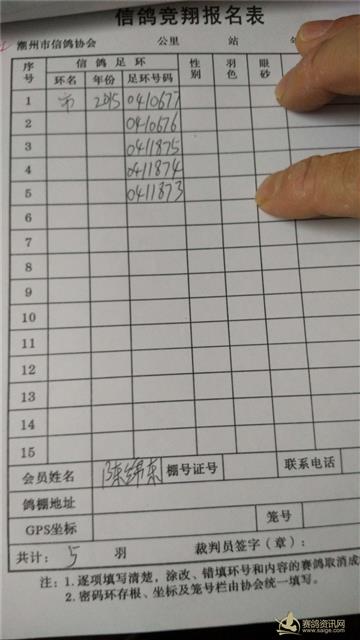 信鸽竞翔报名表
潮州市信鸽协会 公里 站
序号 信鸽足环 性别 羽色 眼砂
环名 年份 足环号码
1 市 2015 0410677
2 0410676
3 0411875
4 0411874
5 0411873
6
7
8
9
10
11
12
13
14
15
会员姓名 陈绵东 棚号证号 联系电话
鸽棚地址
GPS坐标 笼号
共计: 5 羽 裁判员签字(章):
注: 1. 逐项填写清楚, 涂改、错填环号和内容的赛鸽取消成
2. 密码环存根、坐标及笼号栏由协会统一填写。
赛鸽资讯网
www.saige.com